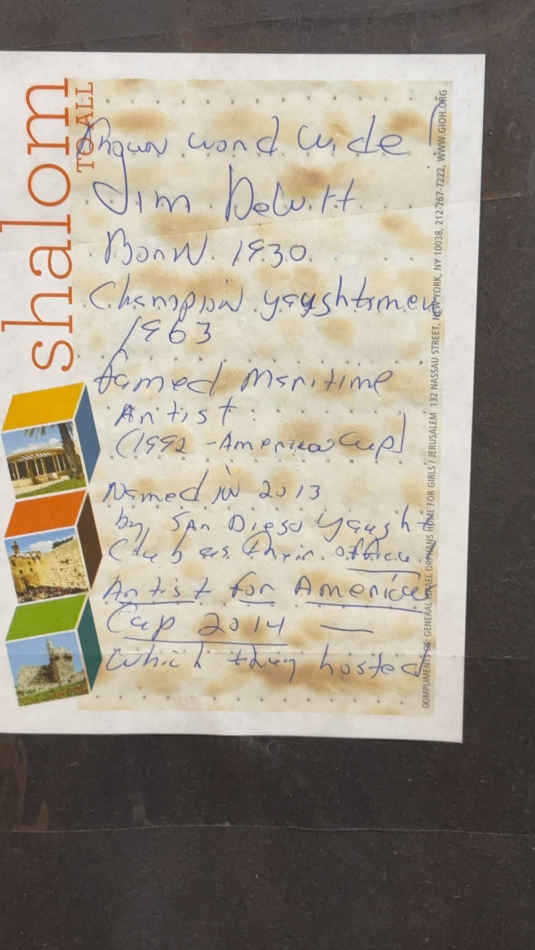 shalom
TO ALL
Known world wide!
Jim DeWitt
Born 1930.
Champion yayshtsmen
1963
famed Maritime
Artist
(1992 - America Cup)
Named in 2013
by San Diego Yaught
Club as their official
Artist for Americas
Cup 2014 —
which they hosted
COMPLIMENTS OF: GENERAL ISRAEL ORPHANS HOME FOR GIRLS / JERUSALEM 132 NASSAU STREET, NEW YORK, NY 10038, 212-267-7222, WWW.GIOH.ORG